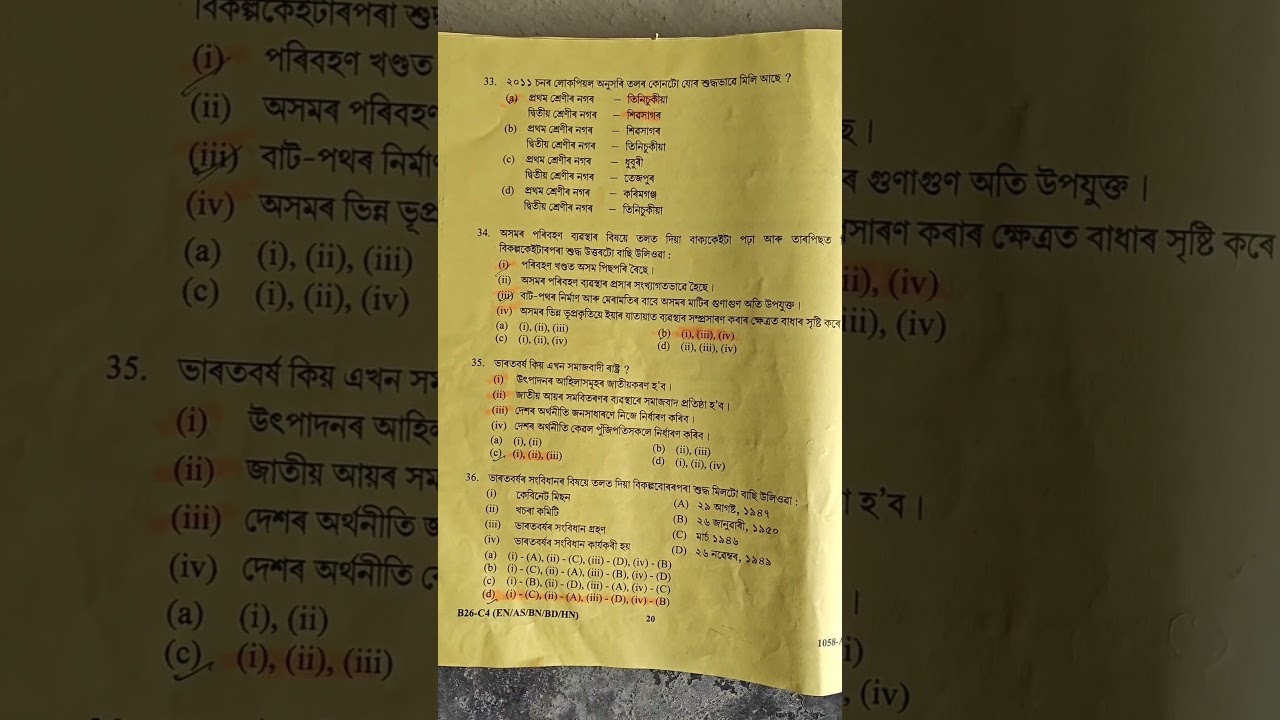 33. ২০১১ চনৰ লোকপিয়ল অনুসৰি তলৰ কোনটো যোৰ শুদ্ধভাৱে মিলি আছে ?
(a) প্ৰথম শ্ৰেণীৰ নগৰ — তিনিচুকীয়া
দ্বিতীয় শ্ৰেণীৰ নগৰ — শিৱসাগৰ
(b) প্ৰথম শ্ৰেণীৰ নগৰ — শিৱসাগৰ
দ্বিতীয় শ্ৰেণীৰ নগৰ — তিনিচুকীয়া
(c) প্ৰথম শ্ৰেণীৰ নগৰ — ধুবুৰী
দ্বিতীয় শ্ৰেণীৰ নগৰ — তেজপুৰ
(d) প্ৰথম শ্ৰেণীৰ নগৰ — কৰিমগঞ্জ
দ্বিতীয় শ্ৰেণীৰ নগৰ — তিনিচুকীয়া
34. অসমৰ পৰিবহণ ব্যৱস্থাৰ বিষয়ে তলত দিয়া বাক্যকেইটা পঢ়া আৰু তাৰপিছত
বিকল্পকেইটাৰপৰা শুদ্ধ উত্তৰটো বাছি উলিওৱা :
(i) পৰিবহণ খণ্ডত অসম পিছপৰি ৰৈছে।
(ii) অসমৰ পৰিবহণ ব্যৱস্থাৰ প্ৰসাৰ সংখ্যাগতভাৱে হৈছে।
(iii) বাট-পথৰ নিৰ্মাণ আৰু মেৰামতিৰ বাবে অসমৰ মাটিৰ গুণাগুণ অতি উপযুক্ত।
(iv) অসমৰ ভিন্ন ভূপ্ৰকৃতিয়ে ইয়াৰ যাতায়াত ব্যৱস্থাৰ সম্প্ৰসাৰণ কৰাৰ ক্ষেত্ৰত বাধাৰ সৃষ্টি কৰে
(a) (i), (ii), (iii) (b) (i), (iii), (iv)
(c) (i), (ii), (iv) (d) (ii), (iii), (iv)
35. ভাৰতবৰ্ষ কিয় এখন সমাজবাদী ৰাষ্ট্ৰ ?
(i) উৎপাদনৰ আহিলাসমূহৰ জাতীয়কৰণ হ'ব।
(ii) জাতীয় আয়ৰ সমবিতৰণৰ ব্যৱস্থাৰে সমাজবাদ প্ৰতিষ্ঠা হ'ব।
(iii) দেশৰ অৰ্থনীতি জনসাধাৰণে নিজে নিৰ্ধাৰণ কৰিব।
(iv) দেশৰ অৰ্থনীতি কেৱল পুঁজিপতিসকলে নিৰ্ধাৰণ কৰিব।
(a) (i), (ii) (b) (ii), (iii)
(c) (i), (ii), (iii) (d) (i), (ii), (iv)
36. ভাৰতবৰ্ষৰ সংবিধানৰ বিষয়ে তলত দিয়া বিকল্পবোৰৰপৰা শুদ্ধ মিলটো বাছি উলিওৱা :
(i) কেবিনেট মিছন (A) ২৯ আগষ্ট, ১৯৪৭
(ii) খচৰা কমিটি (B) ২৬ জানুৱাৰী, ১৯৫০
(iii) ভাৰতবৰ্ষৰ সংবিধান গ্ৰহণ (C) মাৰ্চ ১৯৪৬
(iv) ভাৰতবৰ্ষৰ সংবিধান কাৰ্যকৰী হয় (D) ২৬ নৱেম্বৰ, ১৯৪৯
(a) (i) - (A), (ii) - (C), (iii) - (D), (iv) - (B)
(b) (i) - (C), (ii) - (A), (iii) - (B), (iv) - (D)
(c) (i) - (B), (ii) - (D), (iii) - (A), (iv) - (C)
(d) (i) - (C), (ii) - (A), (iii) - (D), (iv) - (B)
B26-C4 (EN/AS/BN/BD/HN) 20
1058-